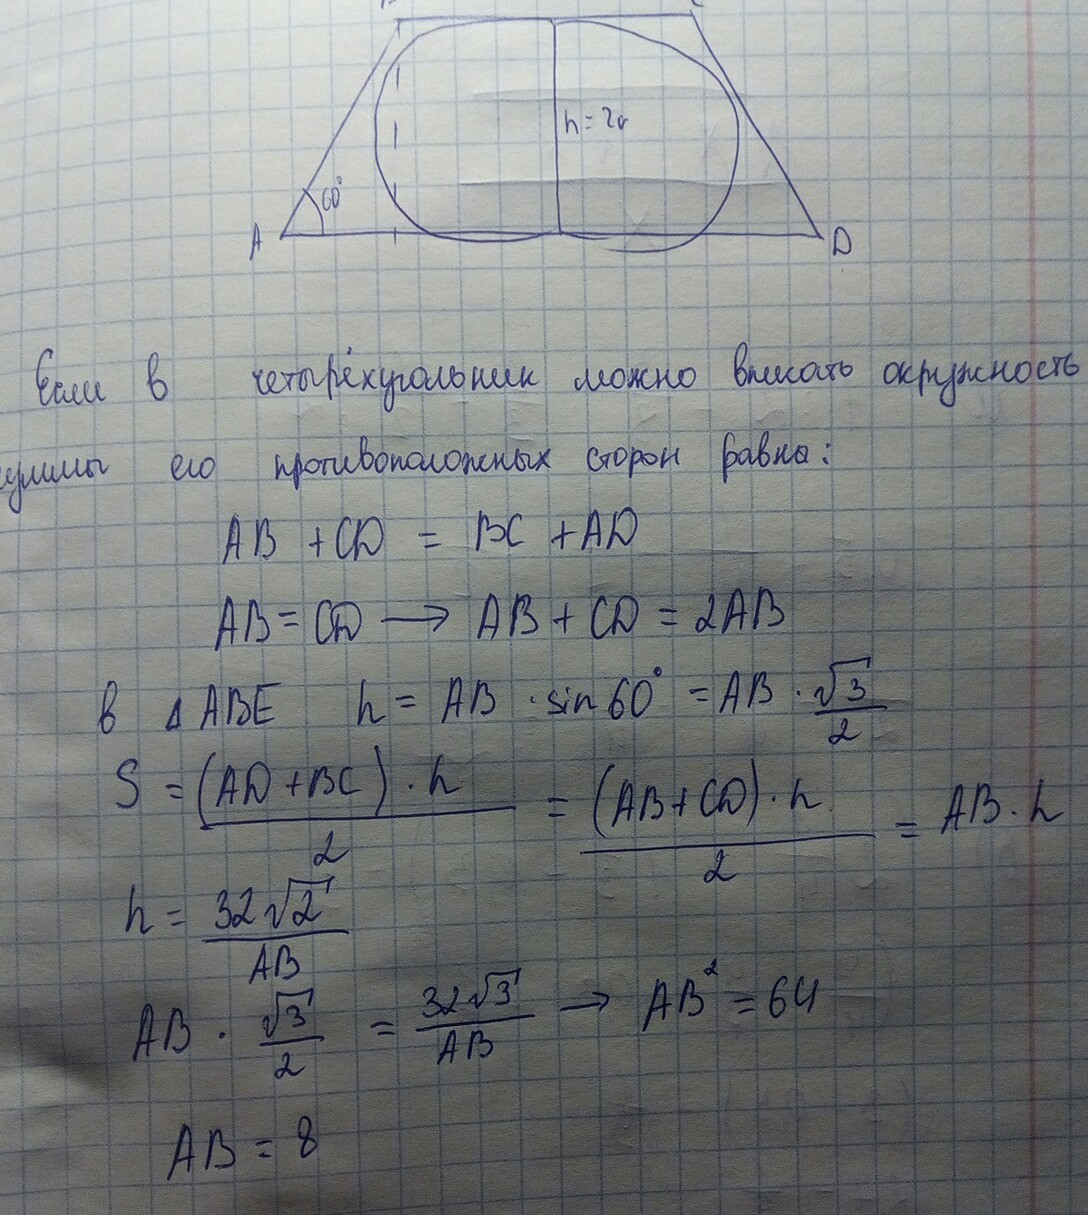 h = 2r
60°
A
D
Если в четырёхугольник можно вписать окружность
суммы его противоположных сторон равна:
AB + CD = BC + AD
AB = CD → AB + CD = 2AB
В Δ ABE h = AB · sin 60° = AB · √3/2
S = (AD + BC) · h / 2 = (AB + CD) · h / 2 = AB · h
h = 32√2 / AB
AB · √3/2 = 32√3 / AB → AB² = 64
AB = 8